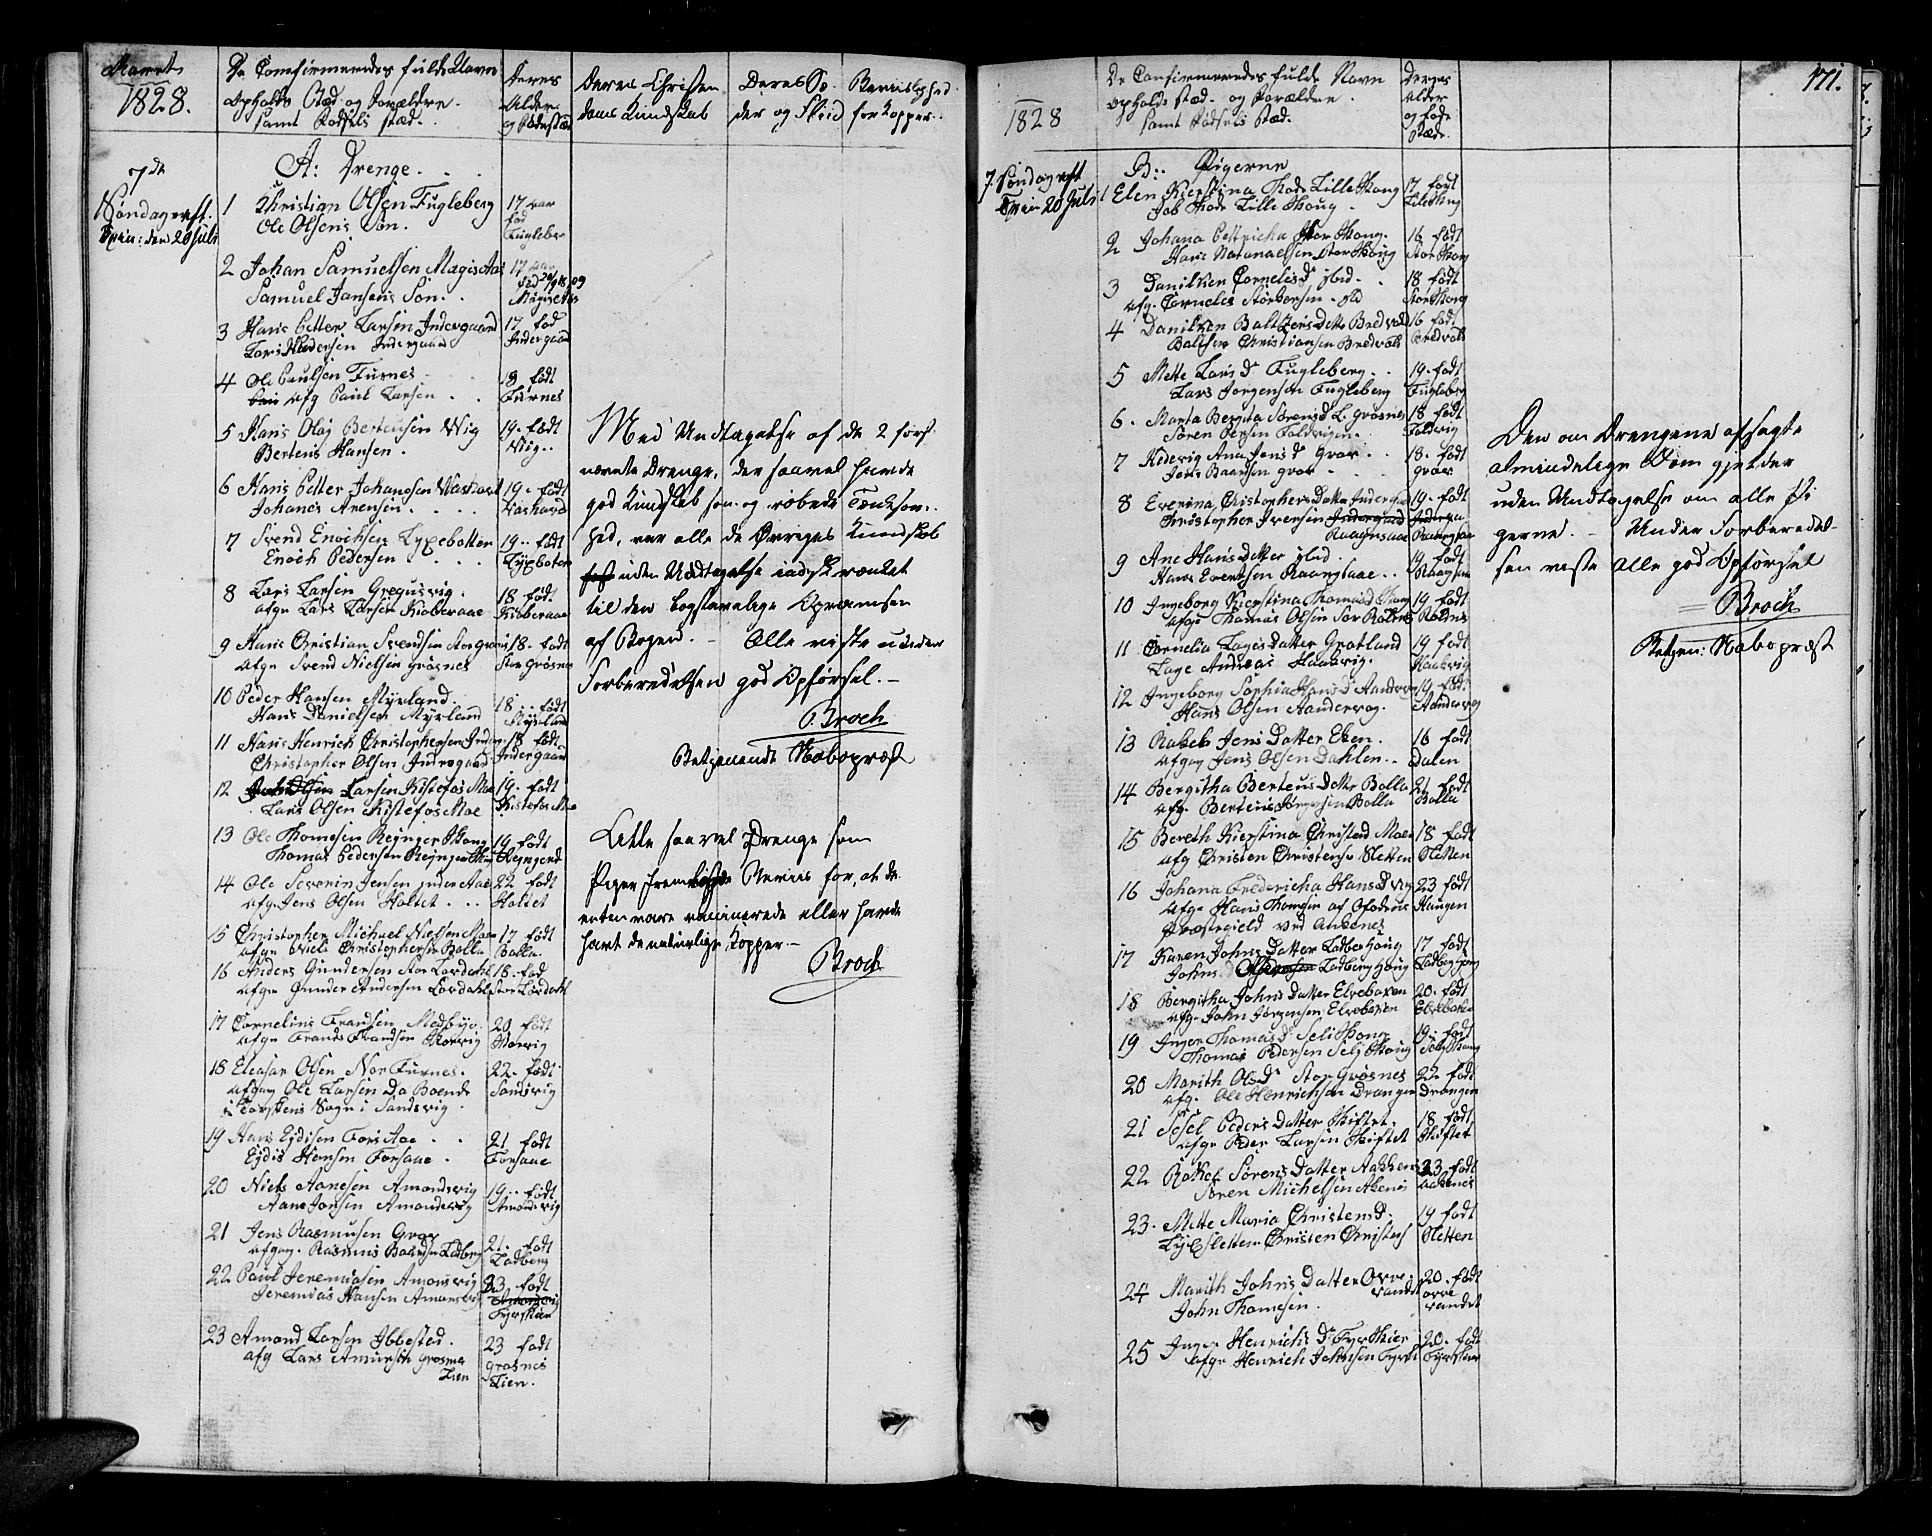 Aaret
1828.
De Comfirmeredes fulde Navn
Opholds Stæd og Forældre.
samt Fødsels stæd.
Deres
Alder
og Fødestæd
Deres Christen
doms Kundskab
Deres Sæ
der og Fliid
Beviislighed
for Kopper.
7de
Søndag eft.
Trin: den 20 Juli
A: Drenge.
1 Christian Olsen Fugleberg
Ole Olsens Søn.
17 aar
fød
Fugleber
2 Johan Samuelsen Mægis Aas
Samuel Jansens Søn.
17 aar
3 Hans Petter Larsen Indergaard
Lars Pedersen Indergaard
17 fød
Indergaard
4 Ole Paulsen Furnes
afg Paul Larsen
18 født
Furnes
5 Hans Olaj Berteusen Wiig
Berteus Hansen.
19. født
Wiig..
6 Hans Petter Johansen Washavd
Johanes Arensen.
19. født
Vashavd
7 Svend Enochsen Lyxebotten
Enoch Pedersen
19.. født
Lyxboten
8 Lars Larsen Greguisvig.
afgn Lars Larsen Kioberaae
18 født
Kioberaae
9 Hans Christian Svendsen Stor Grosnes
afgn Svend Nielsen Grosnes
18. født
Stor Grosnes
10 Peder Hansen Myrland
Hans Danielsen Myrland
18.. født
Myrland
11 Hans Henrich Christophersen Inder
Christopher Olsen Indregaard
18 født
Indergaard
12 Larsen Kistefos Moe
Lars Olsen Kistefos Moe
19. født
Kistefos Moe
13 Ole Thomesen Reynger Skoug
Thomas Pedersen
19 født
14 Ole Severin Jensen Inder Aas
afg. Jens Olsen Holtet
22 født
Holtet
15 Christopher Michael Nielsen Moen
afgn Niels Christophersen Bolla
17 født
Bolla.
16 Anders Gundersen Stor Lørdahl
afgn Gunder Andersen Lørdahl
18. fød
Stor Lørdahl
17 Cornelius Frandsen Medbye.
afgn Frands Frandsen Skovvig
20 født
Skovvig
18 Eleasar Olsen Nor Furnes.
afgang Ole Larsen da Boende
i Torskens Sogn i Sandsvig.
22. født
Sandsvig
19 Hans Eydisen Fors Aae
Eydis Hansen Forsaae.
21 født
Forsaae
20 Niels Aanesen Amondsvig
Aane Jonsen Amondsvig
19.. født
Amondsvig
21 Jens Rasmusen Grov
afgang. Rasmus Baardsen Ladberg
21. født
Ladberg
22 Paul Jeremiasen Amonsvig
Jeremias Hansen Amonsvig
23 født
Fyrskier
23 Amond Larsen Ibbestad.
afg Lars Amunsen Grosnes
Lien
23 født
Grosnes
Lien.
Med Undtagelse af de 2 først
nævnte Drenge, der saavel havde
god Kundskab som og røbede Tænksom-
hed, var alle de Øvriges Kundskab
uden Undtagelse indskrænket
til den bogstavelige Opramsen
af Bogen. – Alle viste under
Forberedelsen god Opførsel. –
Broch
Betjenende Nabopræst
Alle saavel Drenge som
Piger, fremlagde Beviis for, at de
enten vare vaccinerede eller havde
havt de naturlige Kopper –
Broch
1828
De Confirmeredes fulde Navn
opholds stæd. og Forældre.
samt Fødsels stæd.
Deres
Alder
og føde
stæd.
171.
7. Søndag eft
Trin 20 Juli
B:. Pigerne
1 Elen Kierstina Thode Lille Skoug
Job Thode Lille Skoug.
17 født
Lileskoug
2 Johana Pettricha Stor Skoug.
Hans Natanaelsen Stor Skoug
16 født
Stor Skoug
3 Danilken Cornelisd. ibid.
afg. Cornelis Størkersen. ibid
18 født
Stor Skoug
4 Danilken Baltzersdatter Bredvold
Baltser Christiansen Bredvold
16 fød.
Bredvold
5 Mette Larsd. Fugleberg.
Lars Jorgensen Fugleberg
19. født
Fugleberg
6. Marta Bergita Sørensd. L. Grosnes
Søren Persen Foldvigen.
18 født
Foldvig
7 Hedevig Ana Jensd. Grov.
Jens Baardsen Grov
18. født
Grov
8 Everina Christophersdatter Indergaard
Christopher Iversen Indergaard
Raangsaae
19. født
Raangsaae
9 Ane Hansdatter ibid.
Hans Evertsen Raangsaae..
19 født
Raangsaae
10 Ingeborg Kierstina Thomasd Skoug
afgn Thomas Olsen Sør Rolnes
19 født
Rolnes
11 Cornelia Lagesdatter Gratland
Lage Andreas Haakvig.
19 født
Haakvig
12 Ingeborg Sophia Hansd. Aandervog
Hans Olsen Aandervog.
19 født
Aandervog
13 Rakel Jensdatter Eken.
afgang Jens Olsen Dahlen..
16 født
Dalen
14 Bergitha Berteusdatter Bolla
afg. Berteus Jørgensen Bolla
21 født
Bolla
15 Bereth Kierstina Christend Moe
afg Christen Christensen Sletten
18 født
Sletten
16 Johana Fredericha Hansd. Vig
afgn Hans Thomesen af Ofodens
Præstegield ved Ankenes
23 født
Haugen
17 Karen Johnsdatter Ladberhaug
Johns Ladberghaug
17 født
Ladberghaug
18 Bergitha Johnsdatter Elvebaken
afgn John Jørgensen Elvebaken
20. født
Elvebaken
19 Inger Thomasd. Seliskoug
Thomas Pedersen Seljskoug
19. født
Seljskoug
20 Marith Olsd. Stor Grøsnes
afg. Ole Henrichsen Drangen
22 født
Drangen
21 Sesel Pedersdatter Skiftet.
afgn Peder Larsen Skiftet
18. født
Skiftet
22 Rakel Sørensdatter Aakkenes
Søren Michelsen Akenes
23. født
Aakenes
23. Mette Maria Christensd.
Christen Christens
19 født
Sletten
24 Marith Johnsdatter Ovre
randet
John Thomesen.
20. født
ovre
randet
25 Inger Henrichsd. Fyrskier
afgn Henrich Johnsen Fyrsk
20. født
Fyrskier
Den om Drengene afsagte
almindelige Dom gjelder
uden Undtagelse om alle Pi
gerne. – Under Forberedel-
sen viste alle god Opførsel
Broch
Betjen: Nabopræst